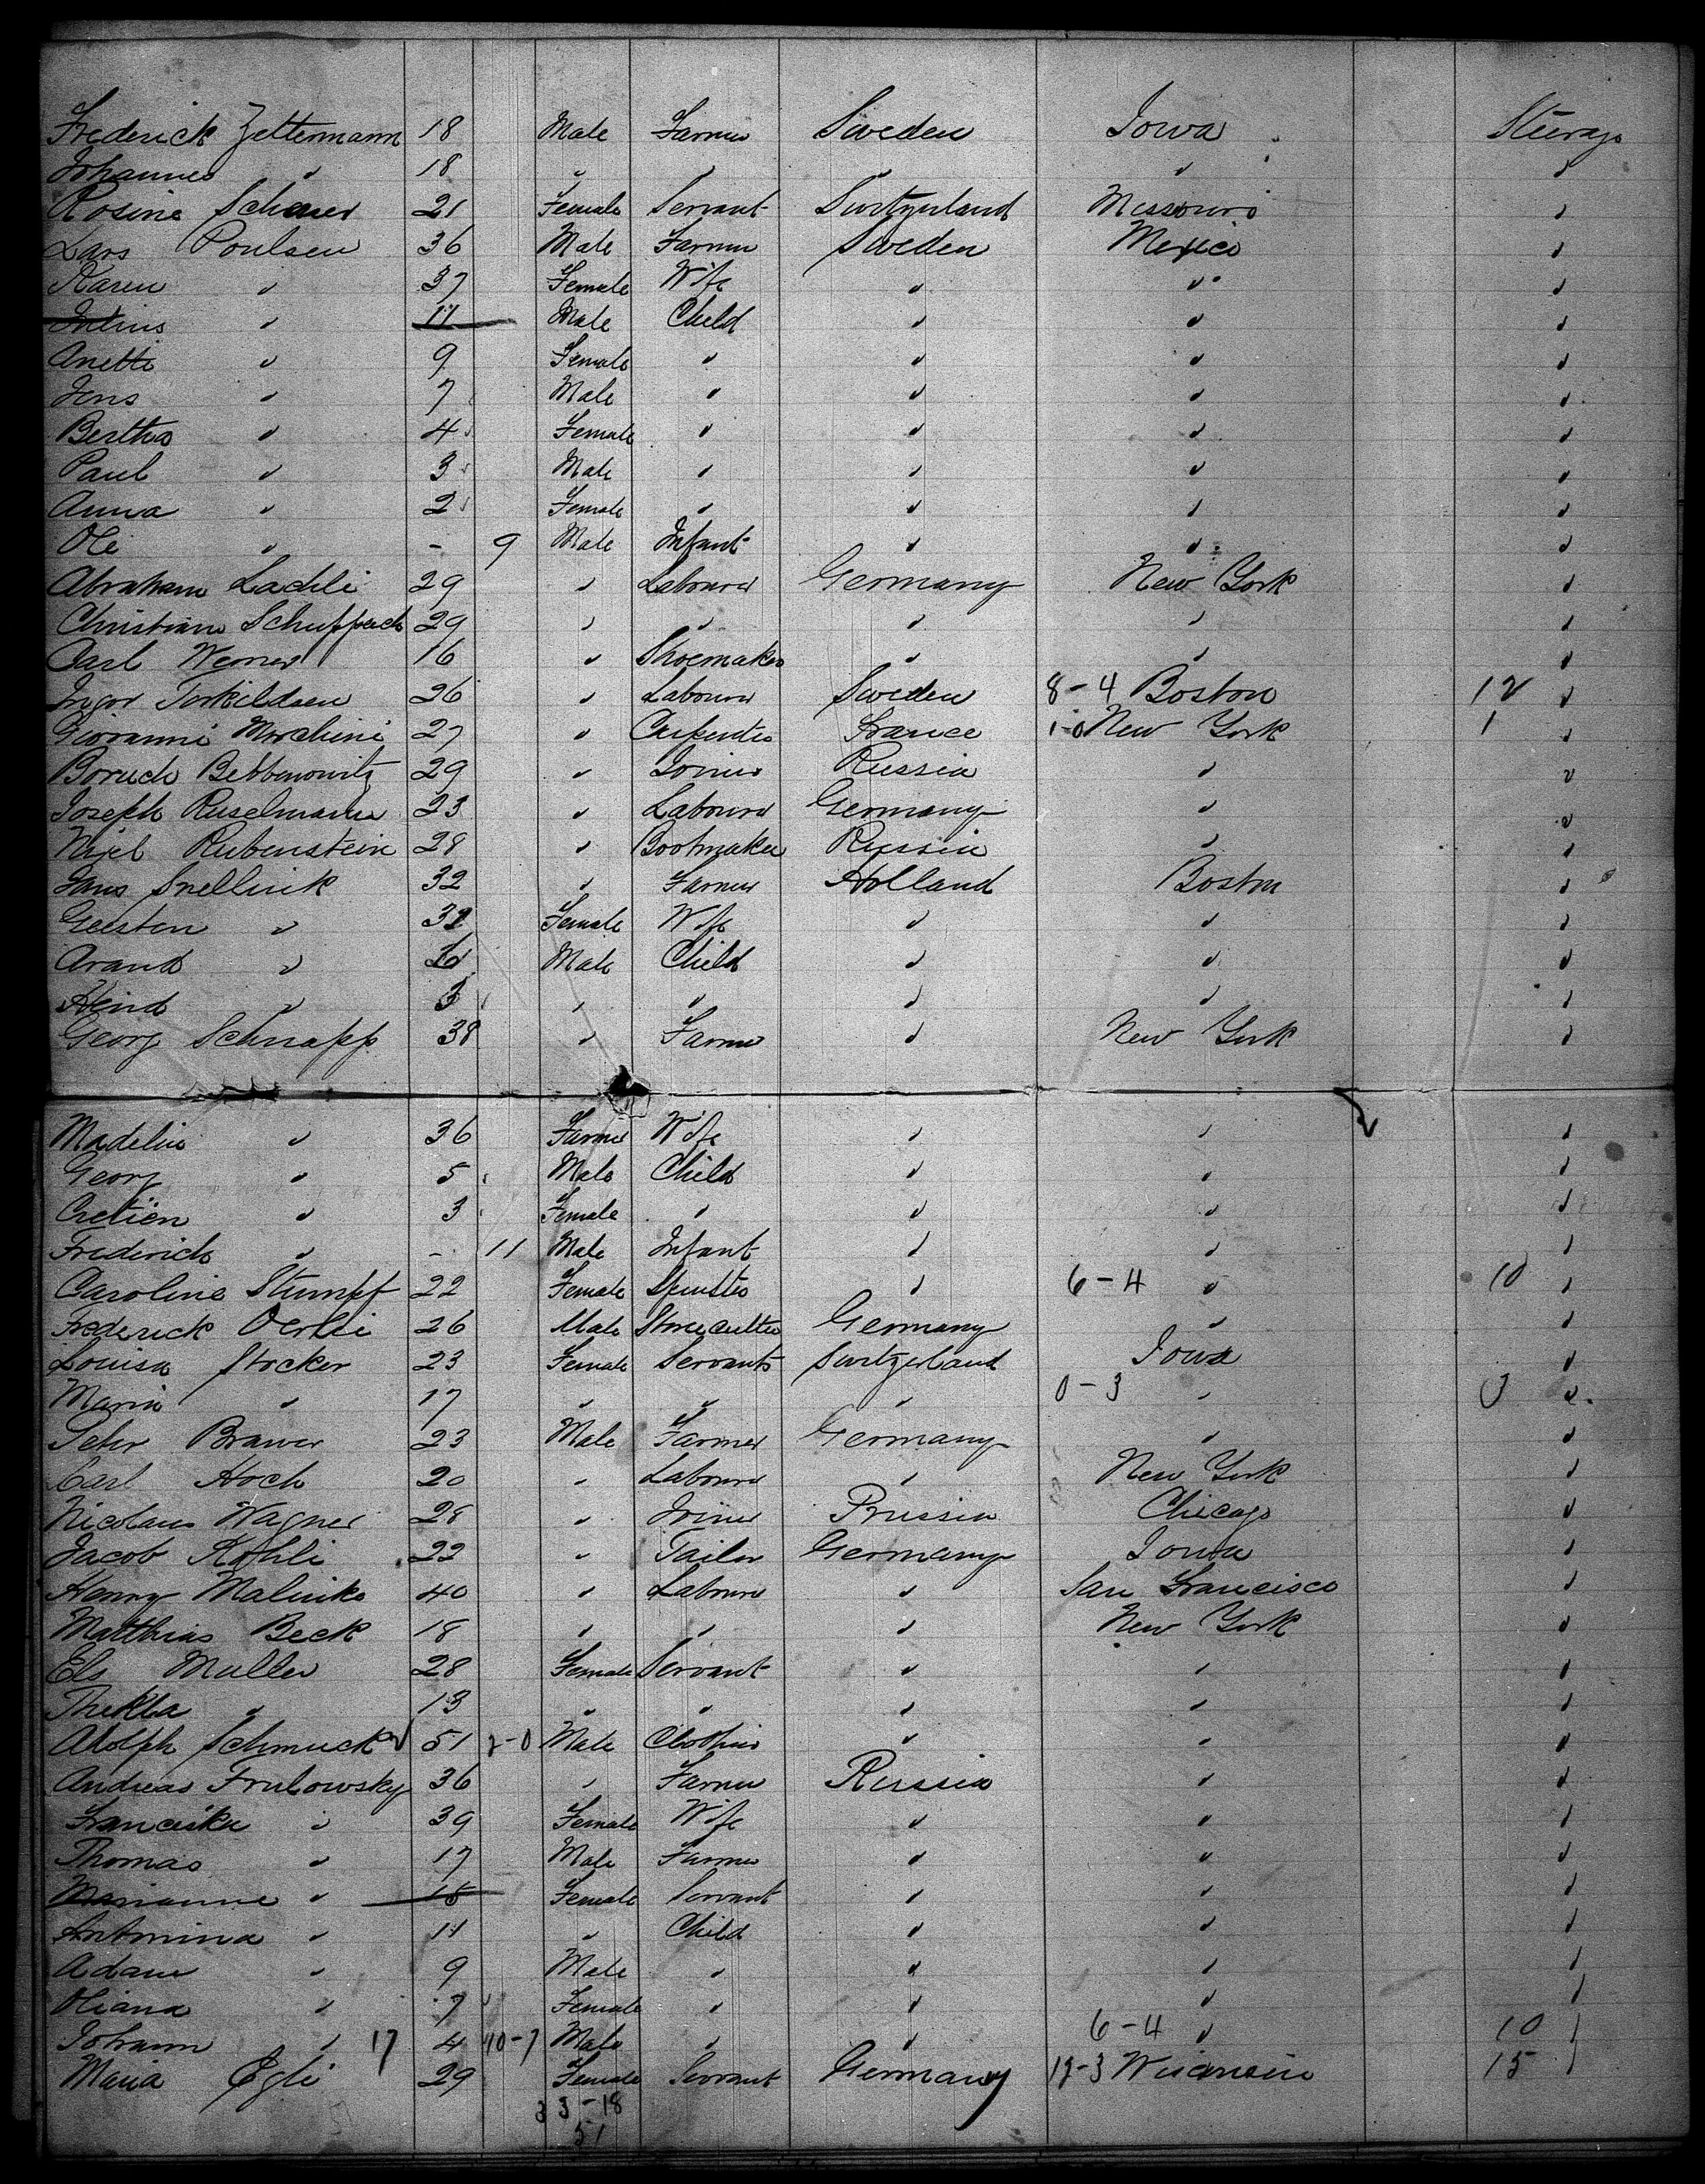 Frederick Zettermann 18 Male Farmer Sweden Iowa Steerage
Johannes " 18 " " " " "
Rosine Scheurer 21 Female Servant Switzerland Missouri "
Lars Poulsen 36 Male Farmer Sweden Mexico "
Karen " 37 Female Wife " " "
Julius " 11 Male Child " " "
Anette " 9 Female " " " "
Jens " 7 Male " " " "
Bertha " 4 Female " " " "
Paul " 3 Male " " " "
Anna " 2 Female " " " "
Ole " - 9 Male Infant " " "
Abraham Lachli 29 " Labourer Germany New York "
Christian Schuppach 29 " " " " "
Carl Werner 16 " Shoemaker " " "
Ingor Torkildsen 26 " Labourer Sweden 8-4 Boston 12 "
Giovanni Marchini 27 " Carpenter France 1-0 New York 1 "
Boruch Bebbenowitz 29 " Joiner Russia " "
Joseph Russelmann 23 " Labourer Germany " "
Rubenstein 28 " Bootmaker Russia " "
Jans Snellink 32 " Farmer Holland Boston "
Geeston " 32 Female Wife " " "
Arand " Male Child " " "
Heind " 3 " " " " "
Georg Schnapp 38 " Farmer " New York "
Madelin " 36 Farmer Wife " " "
Georg " 5 Male Child " " "
Cretien " 3 Female " " " "
Frederick " - 11 Male Infant " " "
Caroline Stumpf 22 Female Spinster " 6-4 " 10 "
Frederick Oertli 26 Male Stonecutter Germany " "
Louisa Stocker 23 Female Servants Switzerland Iowa "
Maria " 17 " " " 0-3 " 3 "
Peter Brawer 23 Male Farmer Germany " "
Carl Hoch 20 " Labourer " New York "
Nicolaus Wagner 28 " Joiner Prussia Chicago "
Jacob Kohli 22 " Tailor Germany Iowa "
Henry Malinko 40 " Labourer " San Francisco "
Matthias Beck 18 " " " New York "
Els Muller 28 Female Servant " " "
Thekla " 13 " " " " "
Adolph Schmucker 51 2-0 Male Clothier " " "
Andreas Frulowsky 36 " Farmer Russia " "
Franciska " 39 Female Wife " " "
Thomas " 17 Male Farmer " " "
Marianne " 15 Female Servant " " "
Antonina " 11 " Child " " "
Adam " 9 Male " " " "
Oliana " 7 Female " " " "
Johann " 17 4 10-7 Male " " 6-4 " 10 "
Maria Egli 29 Female Servant Germany 12-3 Wisconsin 15 "
33-18
51